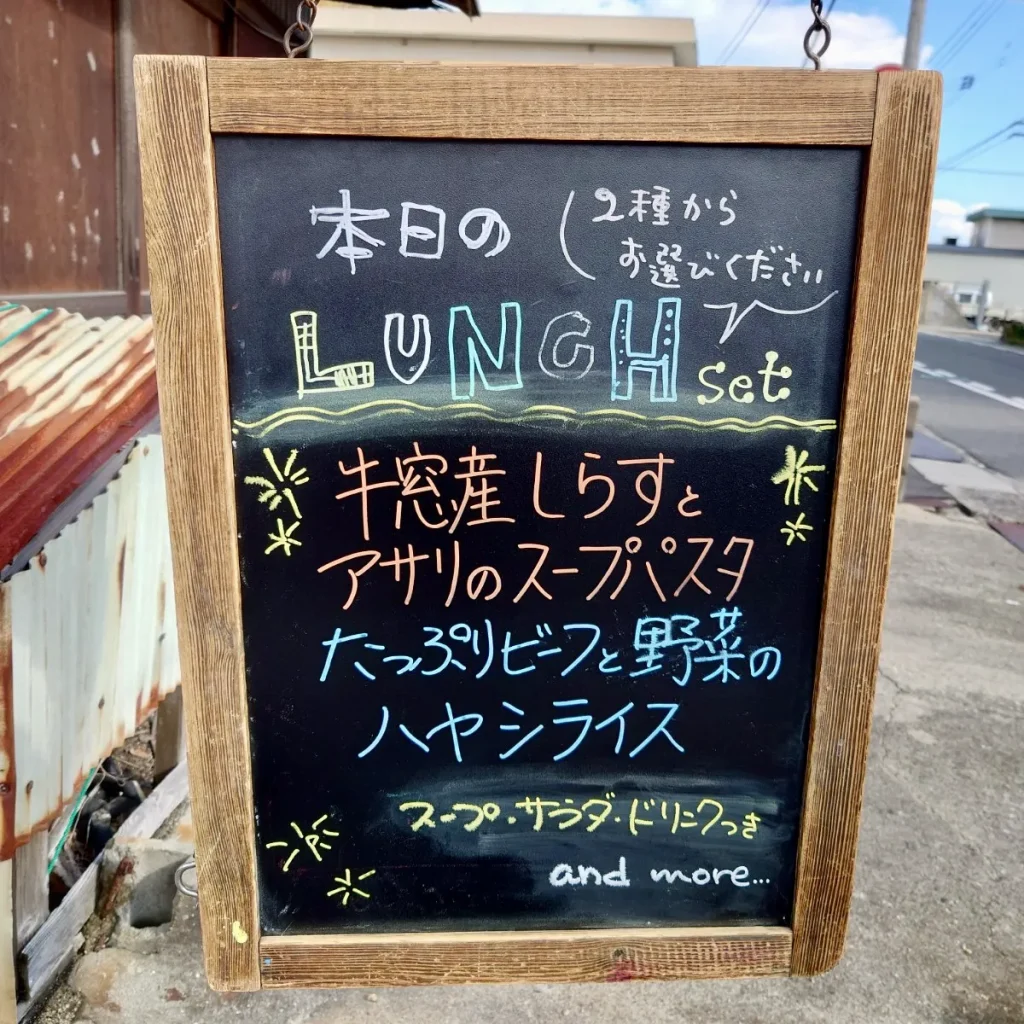 本日の
2種から
お選びください
LUNCH set
牛窓産しらすと
アサリのスープパスタ
たっぷりビーフと野菜の
ハヤシライス
スープ・サラダ・ドリンクつき
and more...